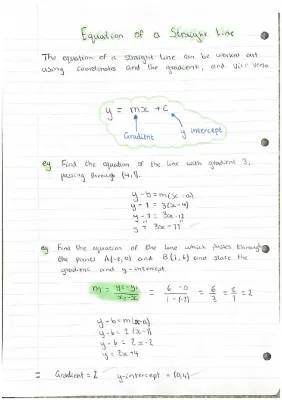 Equation of a Straight Line
The equation of a straight line can be worked out
using coordinates and the gradient, and vice versa
y = mx + c
Gradient
y intercept
eg Find the equation of the line with gradient 3,
passing through (4,1).
y - b = m(x - a)
y - 1 = 3(x - 4)
y - 1 = 3x - 12
y = 3x - 11
eg Find the equation of the line which passes through
the points A(-2,0) and B(1,6) and state the
gradient and y-intercept.
m = y₂-y₁/x₂-x₁ = 6-0/1-(-2) = 6/3 = 2/1 = 2
y - b = m(x-a)
y - 6 = 2(x-1)
y - 6 = 2x - 2
y = 2x + 4
= Gradient = 2 y-intercept = (0,4)